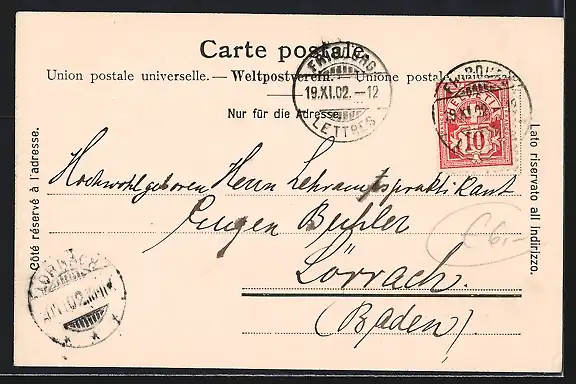 Carte postale.
Union postale universelle. — Weltpostverein. — Unione postale universale.
Nur für die Adresse.
FRIBOURG
19.XI.02.-12
LETTRES
HELVETIA
10
Côté réservé à l'adresse.
Lato riservato all indirizzo.
Hochwohlgeboren Herrn Lehramtspraktikant
Eugen Buhler
Lörrach.
(Baden)
€ 6,-
LÖRRACH